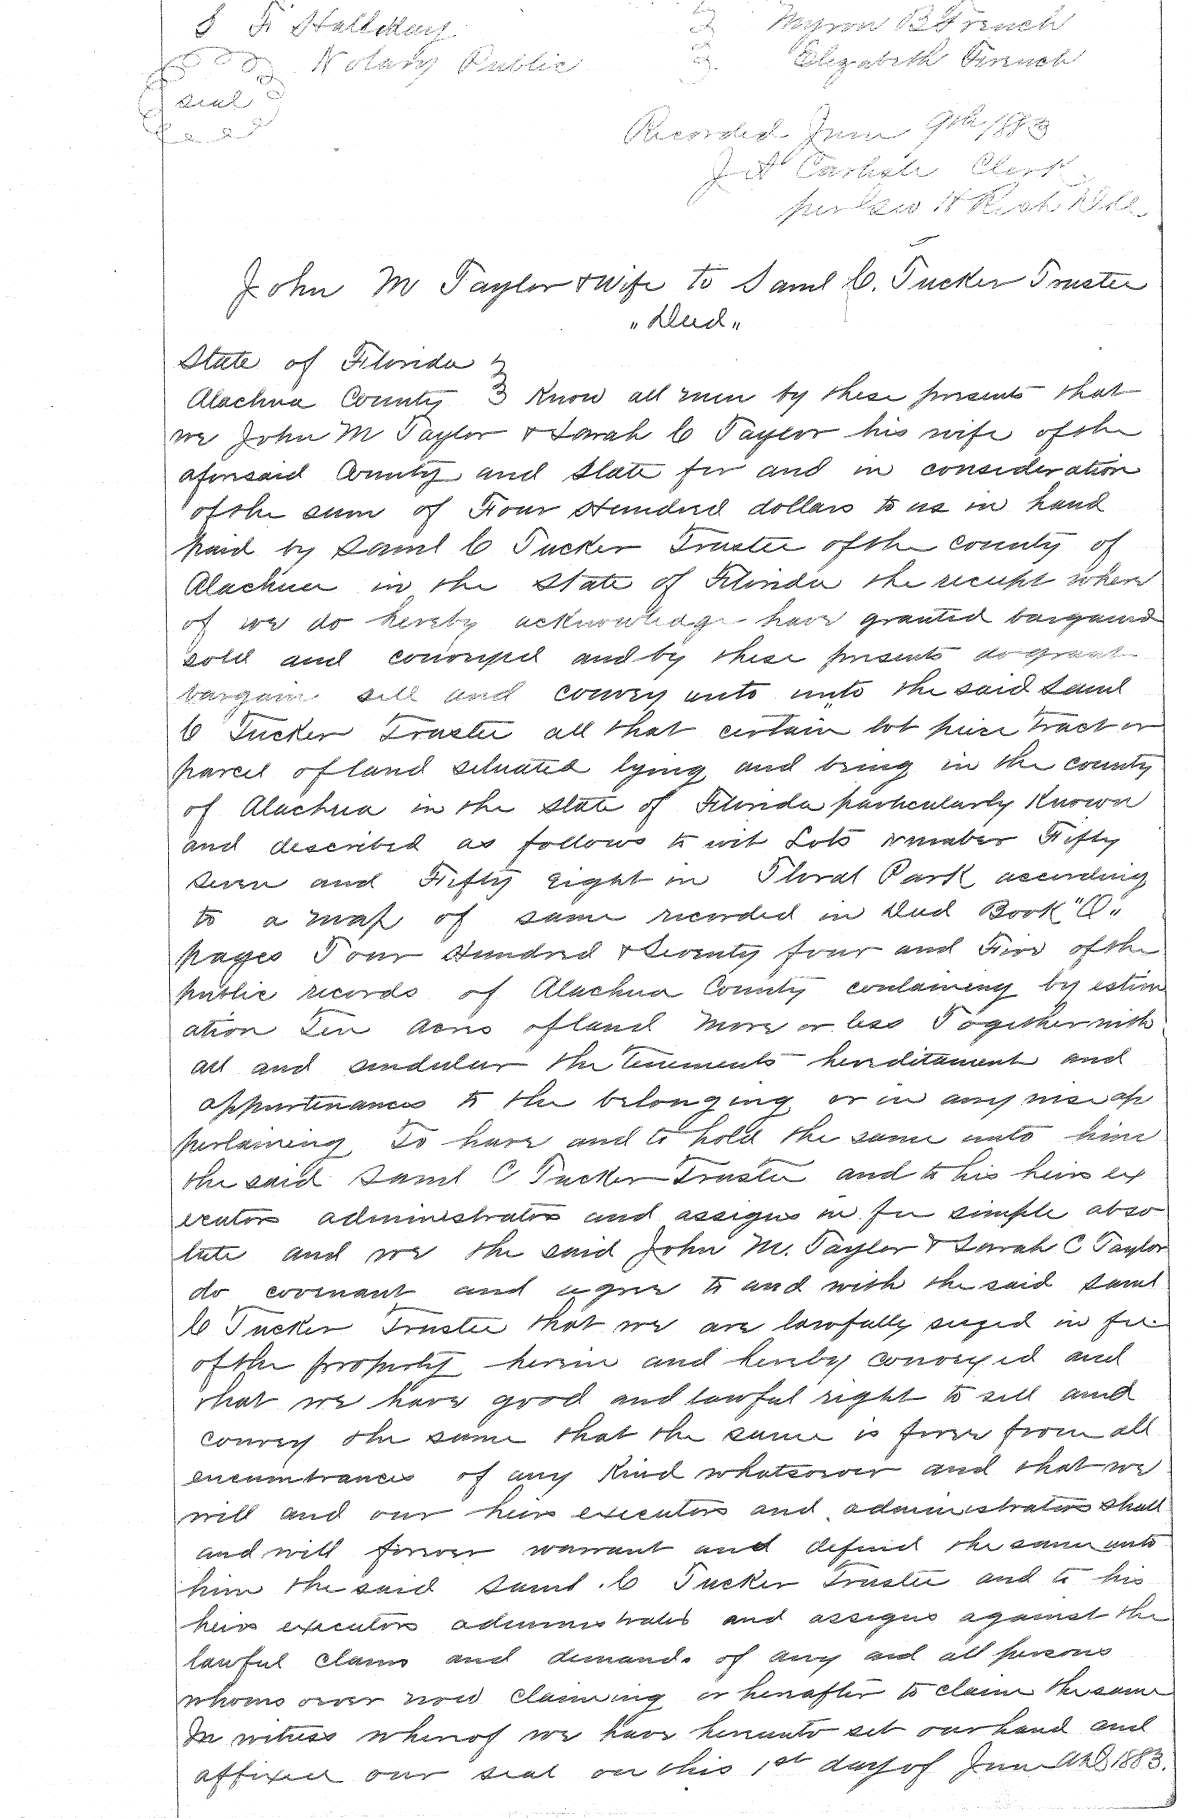 S F Halliday 3 Myron B French
Notary Public 3 Elizabeth French
seal
Recorded June 9th 1883
J A Carlisle Clerk
per Geo H Rish D Clk
John M Taylor & wife to Saml C. Tucker Trustee
"Deed"
State of Florida }
Alachua County } Know all men by these presents that
we John M Taylor & Sarah C Taylor his wife of the
aforesaid County and State for and in consideration
of the sum of Four Hundred dollars to us in hand
paid by Saml C Tucker Trustee of the county of
Alachua in the State of Florida the receipt where
of we do hereby acknowledge have granted bargained
sold and conveyed and by these presents do grant
bargain sell and convey unto unto the said Saml
C Tucker Trustee all that certain lot piece tract or
parcel of land situated lying and being in the county
of Alachua in the State of Florida particularly Known
and described as follows to wit Lots number Fifty
seven and Fifty Eight in Floral Park according
to a map of same recorded in Deed Book "O"
pages Four Hundred & Seventy four and Five of the
public records of Alachua County containing by estim
ation Ten Acres of land more or less Together with
all and sindular the tenements hereditament and
appurtenances to the belonging or in any wise ap
pertaining To have and to hold the same unto him
the said Saml C Tucker Trustee and to his heirs ex
ecutors administrators and assigns in fee simple abso
lute and we the said John M. Taylor & Sarah C Taylor
do covenant and agree to and with the said Saml
C Tucker Trustee that we are lawfully siezed in fee
of the property herein and hereby conveyed and
that we have good and lawful right to sell and
convey the same that the same is free from all
encumbrances of any Kind whatsoever and that we
will and our heirs executors and administrators shall
and will forever warrant and defend the same unto
him the said Saml. C Tucker Trustee and to his
heirs executors administrators and assigns against the
lawful claims and demands of any and all persons
whomsoever now claiming or hereafter to claim the same
In witness whereof we have hereunto set our hand and
affixed our seal on this 1st day of June AD 1883.